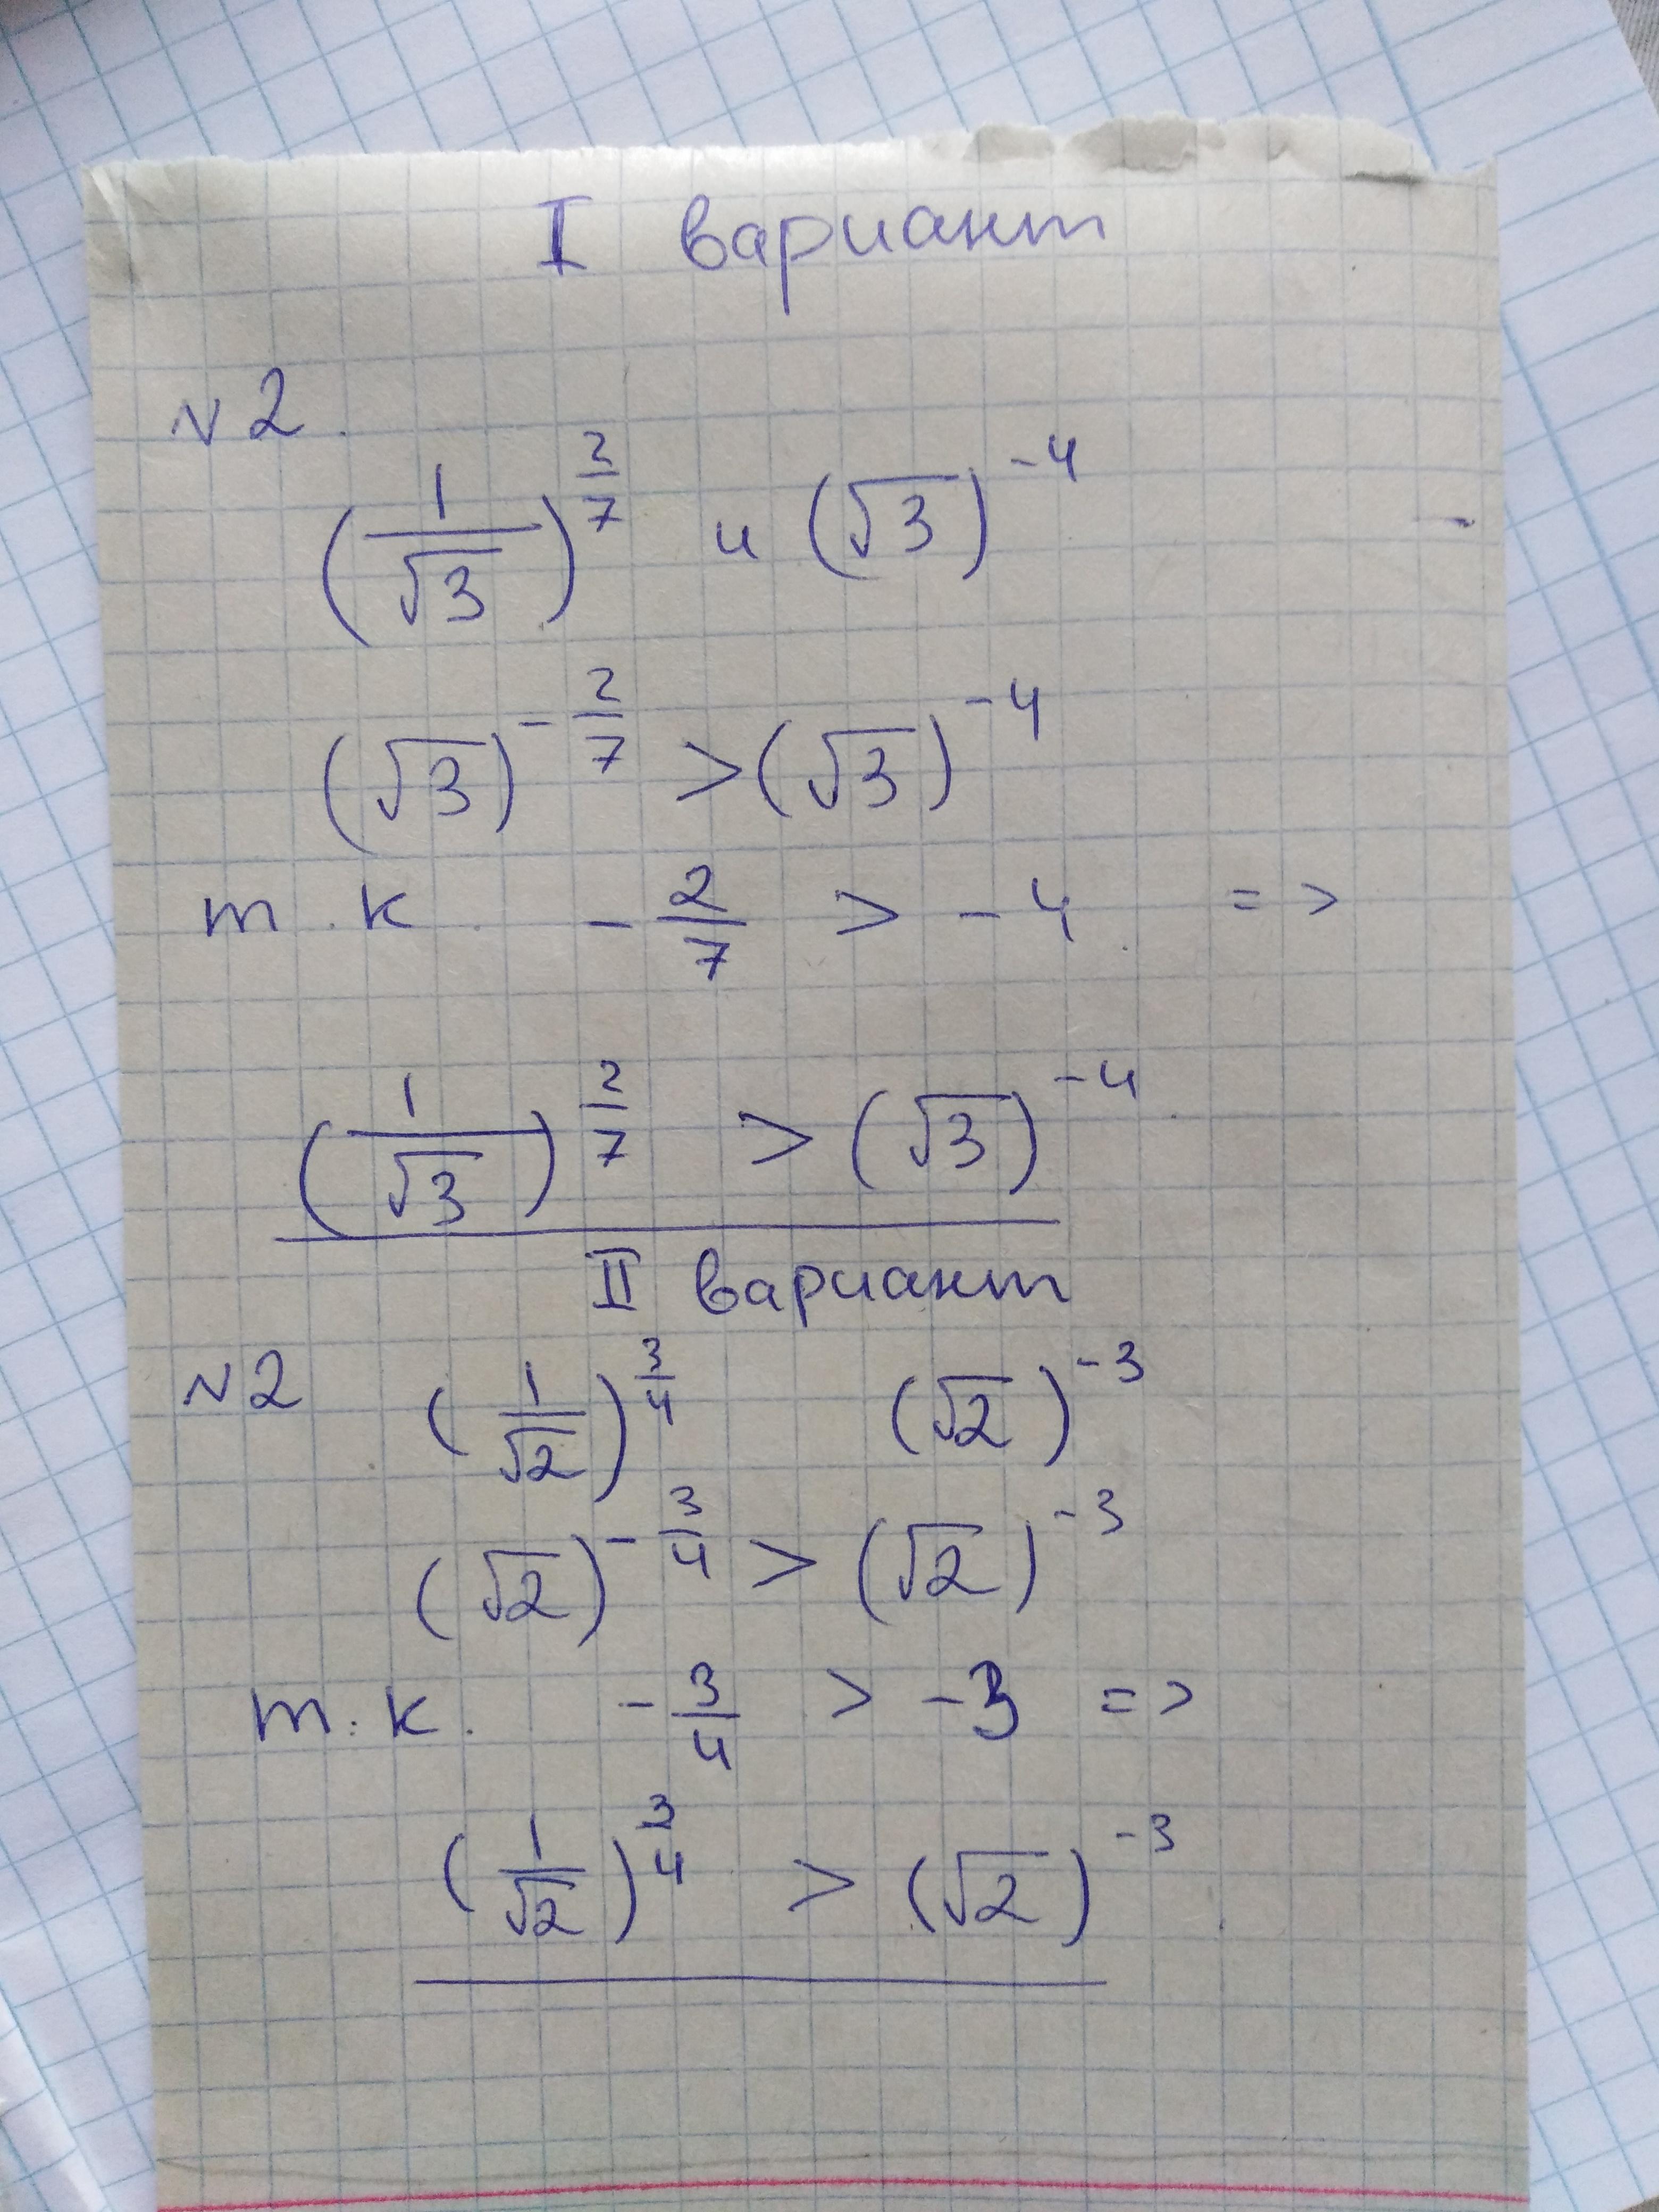 I вариант
№2.
(1/√3)^(2/7) и (√3)^(-4)
(√3)^(-2/7) > (√3)^(-4)
т.к. -2/7 > -4 =>
(1/√3)^(2/7) > (√3)^(-4)
II вариант
№2 (1/√2)^(3/4) (√2)^(-3)
(√2)^(-3/4) > (√2)^(-3)
т.к. -3/4 > -3 =>
(1/√2)^(3/4) > (√2)^(-3)